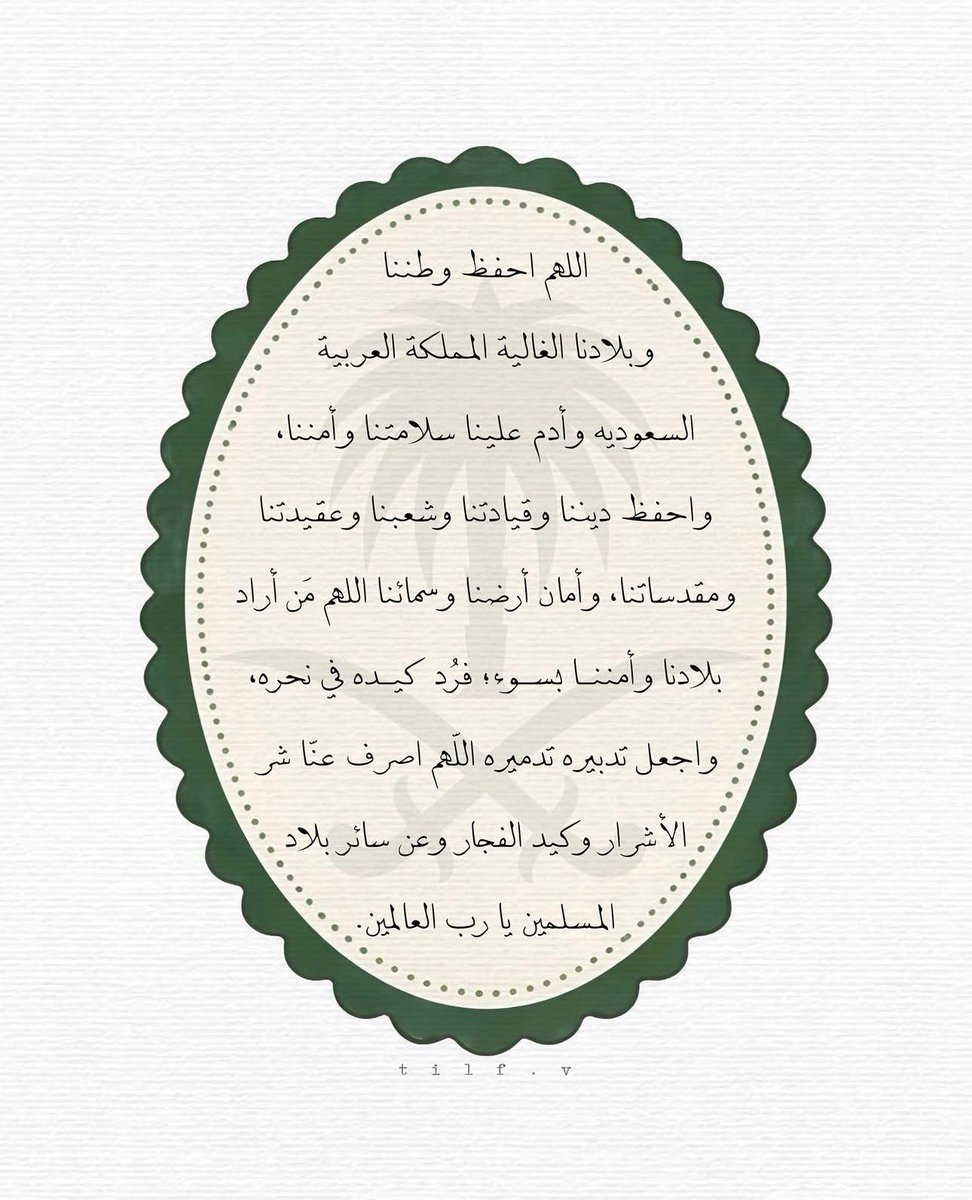 اللهم احفظ وطننا
وبلادنا الغالية المملكة العربية
السعوديه وأدم علينا سلامتنا وأمننا،
واحفظ ديننا وقيادتنا وشعبنا وعقيدتنا
ومقدساتنا، وأمان أرضنا وسمائنا اللهم مَن أراد
بلادنا وأمننـا بســوء؛ فرُد كيـده في نحره،
واجعل تدبيره تدميره اللّهم اصرف عنّا شر
الأشرار وكيد الفجار وعن سائر بلاد
المسلمين يا رب العالمين.
tilf.v